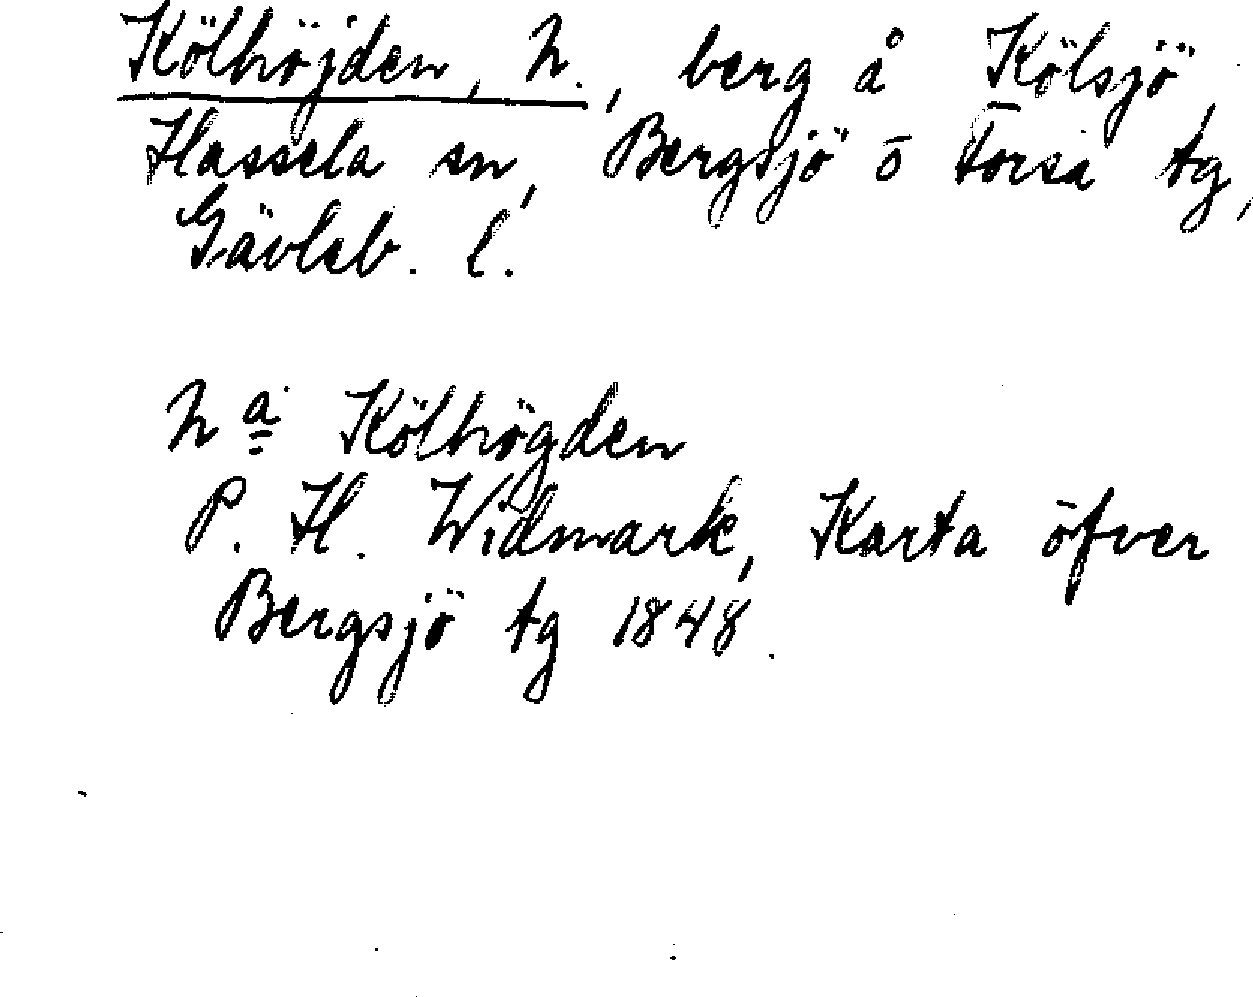 Kölhöjden, N., berg å Kölsjö,
Hassela sn, Bergsjö o Forsa tg,
Gävleb. l.
Na Kölhögden
P. H. Widmark, Karta öfver
Bergsjö tg 1848.